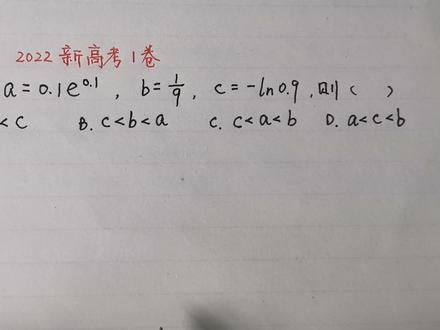 2022 新高考1卷
a=0.1e^0.1, b=1/9, c=-ln0.9, 则( )
<c B. c<b<a C. c<a<b D. a<c<b